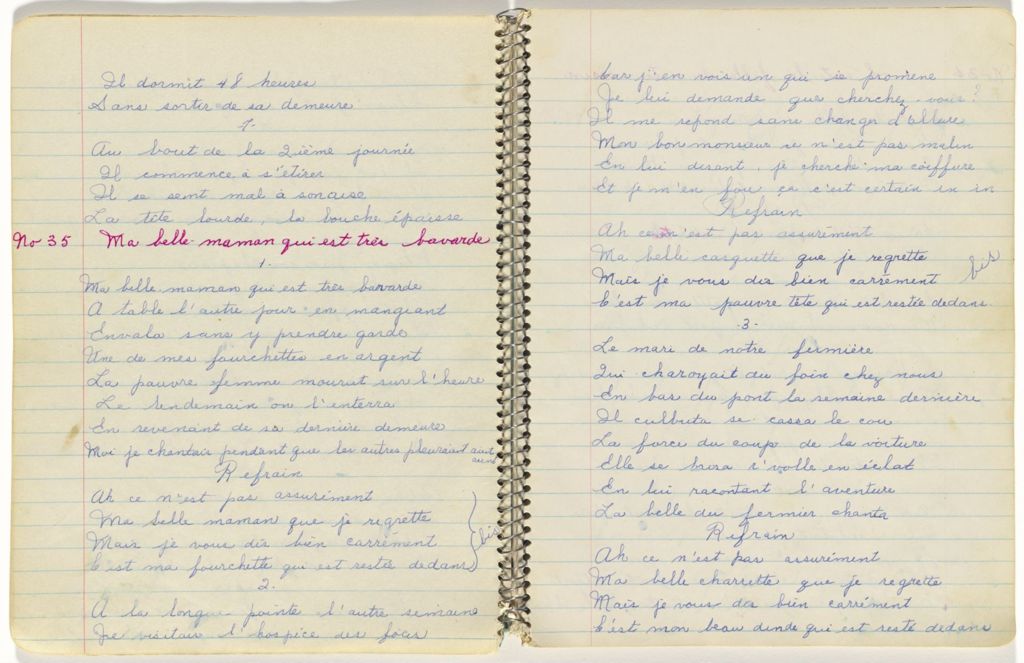 Il dormit 48 heures
Sans sortir de sa demeure
7.
Au bout de la 2ième journée
Il commence à s'étirer
Il se sent mal à son aise
La tête lourde, la bouche épaisse
No 35 Ma belle maman qui est très bavarde
1.
Ma belle maman qui est très bavarde
A table l'autre jour en mangeant
Envala sans y prendre garde
Une de mes fourchettes en argent
La pauvre femme mourut sur l'heure
Le lendemain on l'enterra
En revenant de sa dernière demeure
Moi je chantais pendant que les autres pleuraient
Refrain
Ah ce n'est pas assurément
Ma belle maman que je regrette
Mais je vous dis bien carrément
C'est ma fourchette qui est restée dedans
bis
2.
A la longue pointe l'autre semaine
Je visitais l'hospice des fous
Car j'en vois un qui se promène
Je lui demande que cherchez-vous?
Il me repond sans changer d'allure
Mon bon monsieur se n'est pas malin
En lui disant, je cherche ma coiffure
Et je m'en fou ça c'est certain in in
Refrain
Ah ce n'est pas assurément
Ma belle casquette que je regrette
Mais je vous dis bien carrément
C'est ma pauvre tête qui est restée dedans
bis
-3-
Le mari de notre fermière
Qui charoyait du foin chez nous
En bas du pont la semaine dernière
Il culbuta se cassa le cou
La force du coup de la voiture
Elle se brisa s'volle en éclat
En lui racontant l'aventure
La belle du fermier chanta
Refrain
Ah ce n'est pas assurément
Ma belle charrette que je regrette
Mais je vous dis bien carrément
C'est mon beau dinde qui est resté dedans